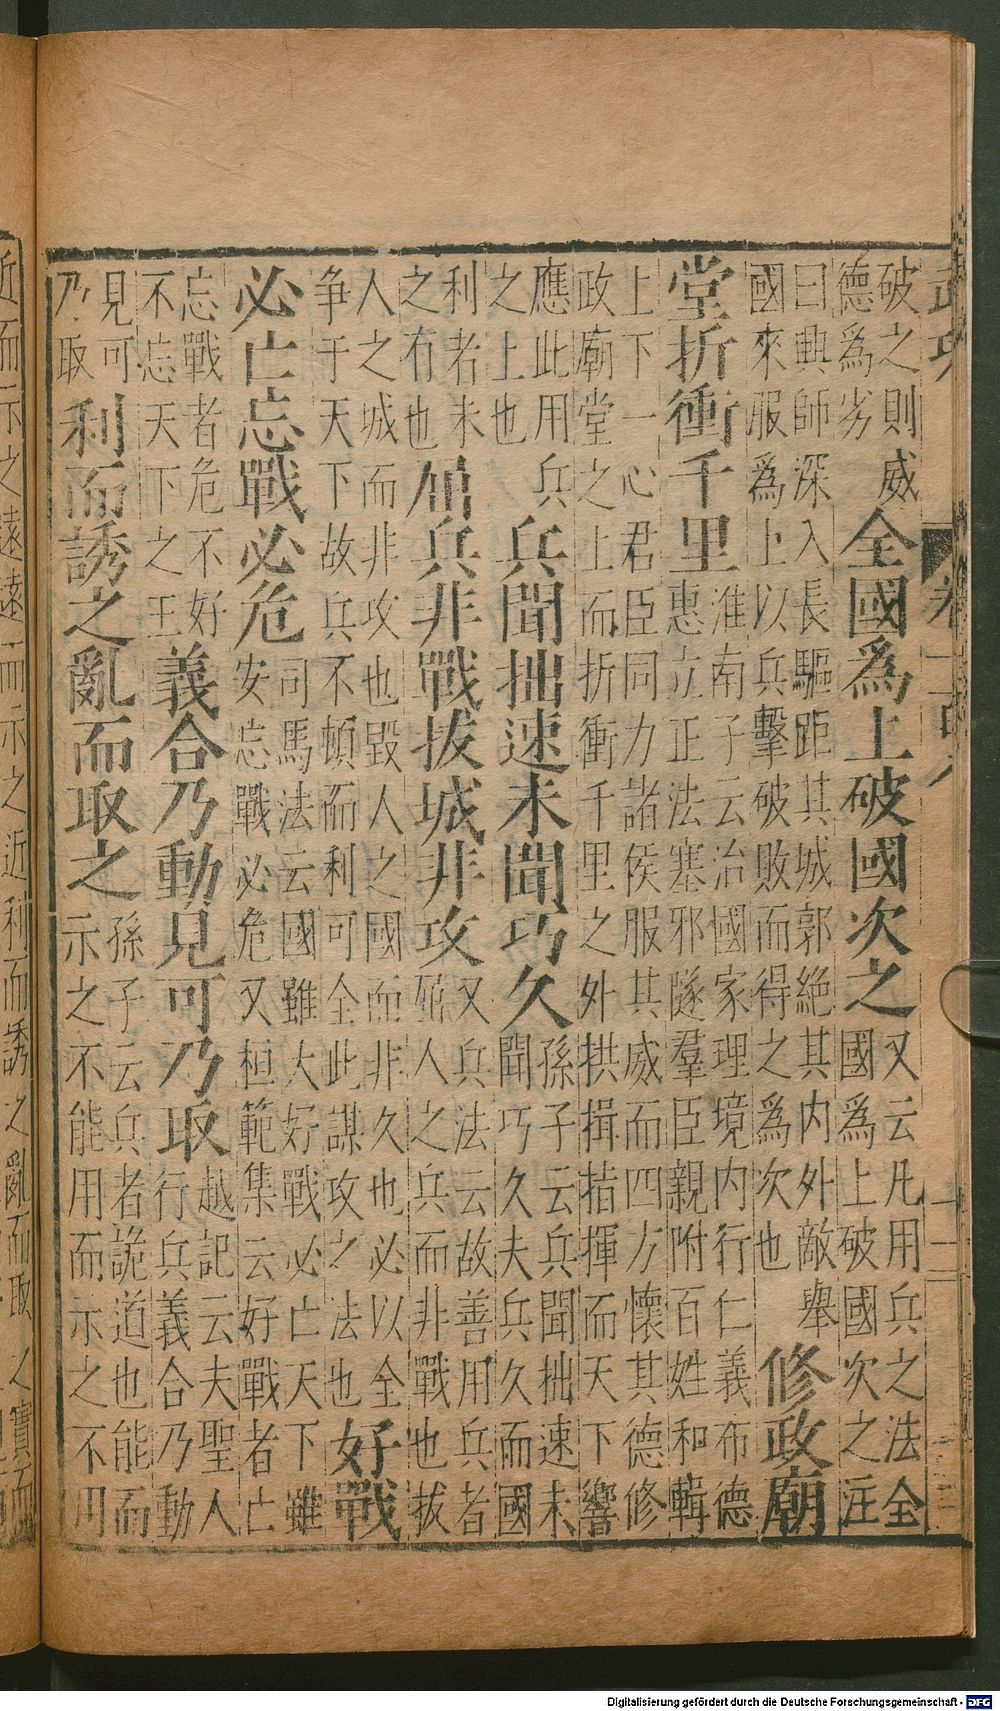 武功
破之則威
德為劣
全國為上破國次之
又云凡用兵之法全
國為上破國次之注
曰興師深入長驅距其城郭絕其內外敵舉
國來服為上以兵擊破敗而得之為次也
修政廟
堂折衝千里
淮南子云治國家理境內行仁義布德
惠立正法塞邪隧羣臣親附百姓和輯
上下一心君臣同力諸侯服其威而四方懷其德修
政廟堂之上而折衝千里之外拱揖指揮而天下響
應此用兵
之上也
兵聞拙速未聞巧久
孫子云兵聞拙速未
聞巧久夫兵久而國
利者未
之有也
屈兵非戰拔城非攻
又兵法云故善用兵者
屈人之兵而非戰也拔
人之城而非攻也毀人之國而非久也必以全
争于天下故兵不頓而利可全此謀攻之法也
好戰
必亡忘戰必危
司馬法云國雖大好戰必亡天下雖
安忘戰必危又桓範集云好戰者亡
忘戰者危不好
不忘天下之王
義合乃動見可乃取
越記云夫聖人
行兵義合乃動
見可
乃取
利而誘之亂而取之
孫子云兵者詭道也能而
示之不能用而示之不用
近而示之遠遠而示之近利而誘之亂而取
Digitalisierung gefördert durch die Deutsche Forschungsgemeinschaft - DFG